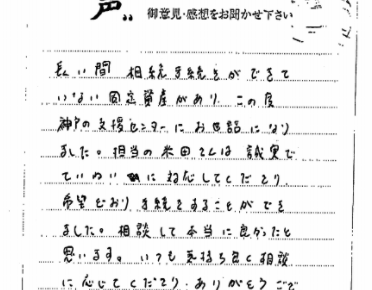 声
御意見・感想をお聞かせ下さい
長い間 相続手続きができて
いない固定資産があり、この度
神戸の支援センターにお世話になり
ました。担当の米田さんは 誠実で
ていねいに対応してくださり、
希望どおり手続きをすることができ
ました。相談して本当に良かったと
思います。いつも気持ち良く相談
に応じてくださり、ありがとうござ